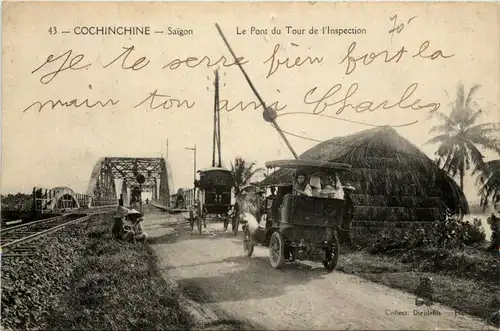 43 — COCHINCHINE — Saigon Le Pont du Tour de l'Inspection
Je te serre bien fort la
main ton ami Charles
Collect. Dieulefils — Hanoï